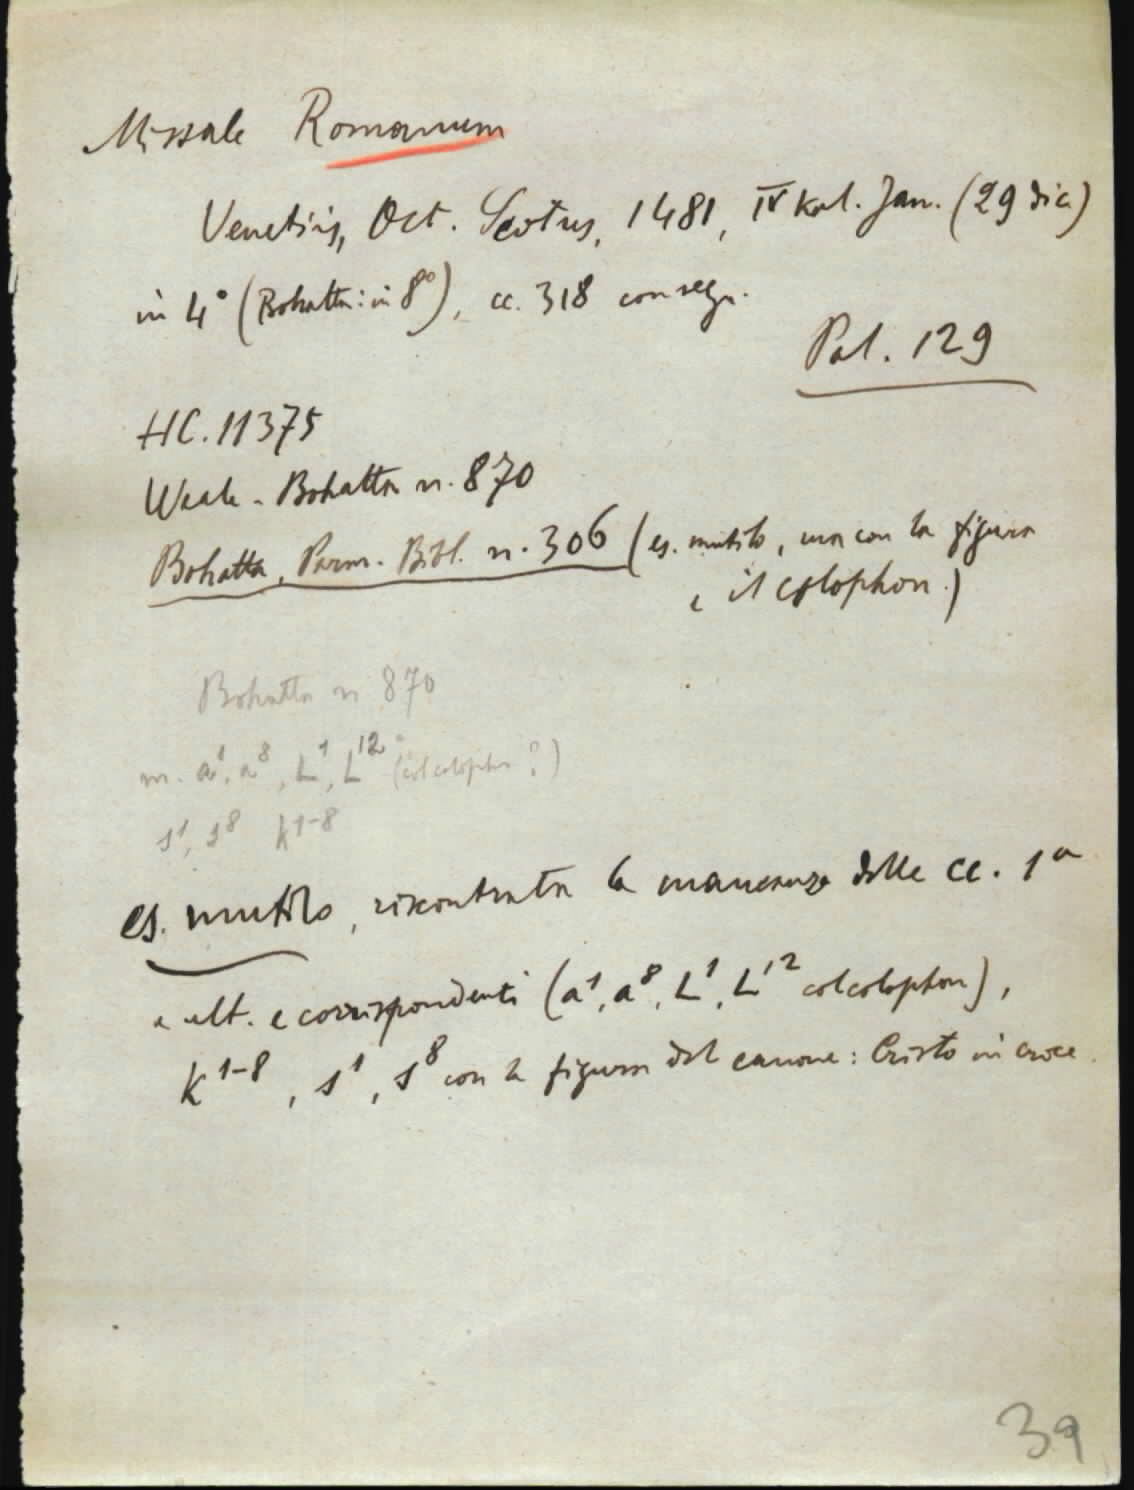 Missale Romanum
Venetiis, Oct. Scotus, 1481, IV Kal. Jan. (29 dic.)
in 4° (Bohatta: in 8°), cc. 318 consegn.
Pal. 129
HC. 11375
Weale - Bohatta n. 870
Bohatta, Parm. Bibl. n. 306 (es. mutilo, ma con la figura
e il colophon.)
Bohatta n 870
m. a¹, a⁸, L¹, L¹² (col colophon?)
s¹, s⁸ k¹⁻⁸
es. mutilo, riscontrata la mancanza delle cc. 1ª
e ult. e corrispondenti (a¹, a⁸, L¹, L¹² col colophon),
k¹⁻⁸, s¹, s⁸ con la figura del canone: Cristo in croce.
39